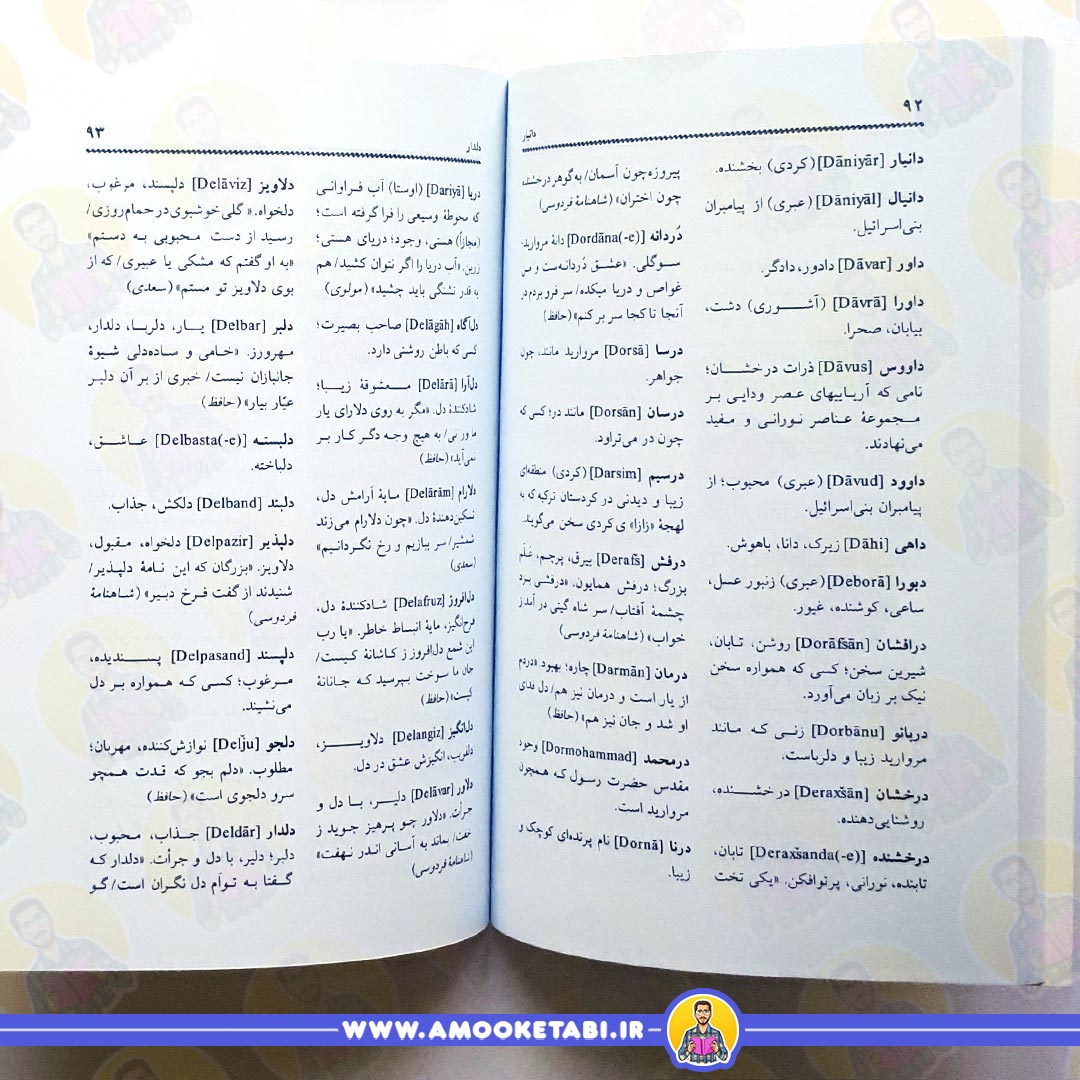 ۹۲
دانیار
دانیار [Dāniyār] (کردی) بخشنده.
دانیال [Dāniyāl] (عبری) از پیامبران
بنی‌اسرائیل.
داور [Dāvar] دادور، دادگر.
داورا [Dāvrā] (آشوری) دشت،
بیابان، صحرا.
داووس [Dāvus] ذرات درخشان؛
نامی که آریاییهای عصر ودایی بر
مجموعهٔ عناصر نورانی و مفید
می‌نهادند.
داوود [Dāvud] (عبری) محبوب؛ از
پیامبران بنی‌اسرائیل.
داهی [Dāhi] زیرک، دانا، باهوش.
دبورا [Deborā] (عبری) زنبور عسل،
ساعی، کوشنده، غیور.
درافشان [Dorāfšān] روشن، تابان،
شیرین سخن؛ کسی که همواره سخن
نیک بر زبان می‌آورد.
دربانو [Dorbānu] زنی که مانند
مروارید زیبا و دلرباست.
درخشان [Deraxšān] درخشنده،
روشنایی‌دهنده.
درخشنده [Deraxšanda(-e)] تابان،
تابنده، نورانی، پرتوافکن. «یکی تخت
پیروزه چون آسمان/ به گوهر درخشنده
چون اختران» (شاهنامهٔ فردوسی)
دُردانه [Dordāna(-e)] دانهٔ مروارید؛
سوگلی. «عشق دُردانه‌ست و من
غواص و دریا میکده/ سر فرو بردم در
آنجا تا کجا سر بر کنم» (حافظ)
درسا [Dorsā] مروارید مانند، چون
جواهر.
درسان [Dorsān] مانند در؛ کسی که
چون در می‌تراود.
درسیم [Darsim] (کردی) منطقه‌ای
زیبا و دیدنی در کردستان ترکیه که به
لهجهٔ «زازا» ی کردی سخن می‌گویند.
درفش [Derafš] بیرق، پرچم، عَلَم
بزرگ؛ درفش همایون. «درفشی بزد
چشمهٔ آفتاب/ سر شاه گیتی در آمد ز
خواب» (شاهنامهٔ فردوسی)
درمان [Darmān] چاره؛ بهبود. «دردم
از یار است و درمان نیز هم/ دل فدای
او شد و جان نیز هم» (حافظ)
درمحمد [Dormohammad] وجود
مقدس حضرت رسول که همچون
مروارید است.
درنا [Dornā] نام پرنده‌ای کوچک و
زیبا.
۹۳
دلدار
دریا [Dariyā] (اوستا) آب فراوانی
که محوطهٔ وسیعی را فرا گرفته است؛
(مجازاً) هستی، وجود؛ دریای هستی؛
زرین. «آب دریا را اگر نتوان کشید/ هم
به قدر تشنگی باید چشید» (مولوی)
دل‌آگاه [Delāgāh] صاحب بصیرت؛
کسی که باطن روشنی دارد.
دل‌آرا [Delārā] معشوقهٔ زیبا؛
شادکنندهٔ دل. «مگر به روی دلارای یار
ما ورنی/ به هیچ وجه دگر کار بر
نمی‌آید» (حافظ)
دلارام [Delārām] مایهٔ آرامش دل،
تسکین‌دهندهٔ دل. «چون دلارام می‌زند
شمشیر/ سر ببازیم و رخ نگردانیم»
(سعدی)
دل‌افروز [Delafruz] شادکنندهٔ دل،
فرح‌انگیز، مایهٔ انبساط خاطر. «یا رب
این شمع دل‌افروز ز کاشانهٔ کیست/
جان ما سوخت بپرسید که جانانهٔ
کیست» (حافظ)
دل‌انگیز [Delangiz] دلاویز،
دلفریب، انگیزش عشق در دل.
دلاور [Delāvar] دلیر، با دل و
جرأت. «دلاور چو پرهیز جوید ز
جفت/ بماند به آسانی اندر نهفت»
(شاهنامهٔ فردوسی)
دلاویز [Delāviz] دلپسند، مرغوب،
دلخواه. «گلی خوشبوی در حمام روزی/
رسید از دست محبوبی به دستم»
«به او گفتم که مشکی یا عبیری/ که از
بوی دلاویز تو مستم» (سعدی)
دلبر [Delbar] یار، دلربا، دلدار،
مهرورز. «خامی و ساده‌دلی شیوهٔ
جانبازان نیست/ خبری از بر آن دلبر
عیّار بیار» (حافظ)
دلبسته [Delbasta(-e)] عاشق،
دلباخته.
دلبند [Delband] دلکش، جذاب.
دلپذیر [Delpazir] دلخواه، مقبول،
دلاویز. «بزرگان که این نامهٔ دلپذیر/
شنیدند از گفت فرخ دبیر» (شاهنامهٔ
فردوسی)
دلپسند [Delpasand] پسندیده،
مرغوب؛ کسی که همواره بر دل
می‌نشیند.
دلجو [Delǰu] نوازش‌کننده، مهربان؛
مطلوب. «دلم بجو که قدت همچو
سرو دلجوی است» (حافظ)
دلدار [Deldār] جذاب، محبوب،
دلبر؛ دلیر، با دل و جرأت. «دلدار که
گفتا به توأم دل نگران است/ گو
WWW.AMOOKETABI.IR